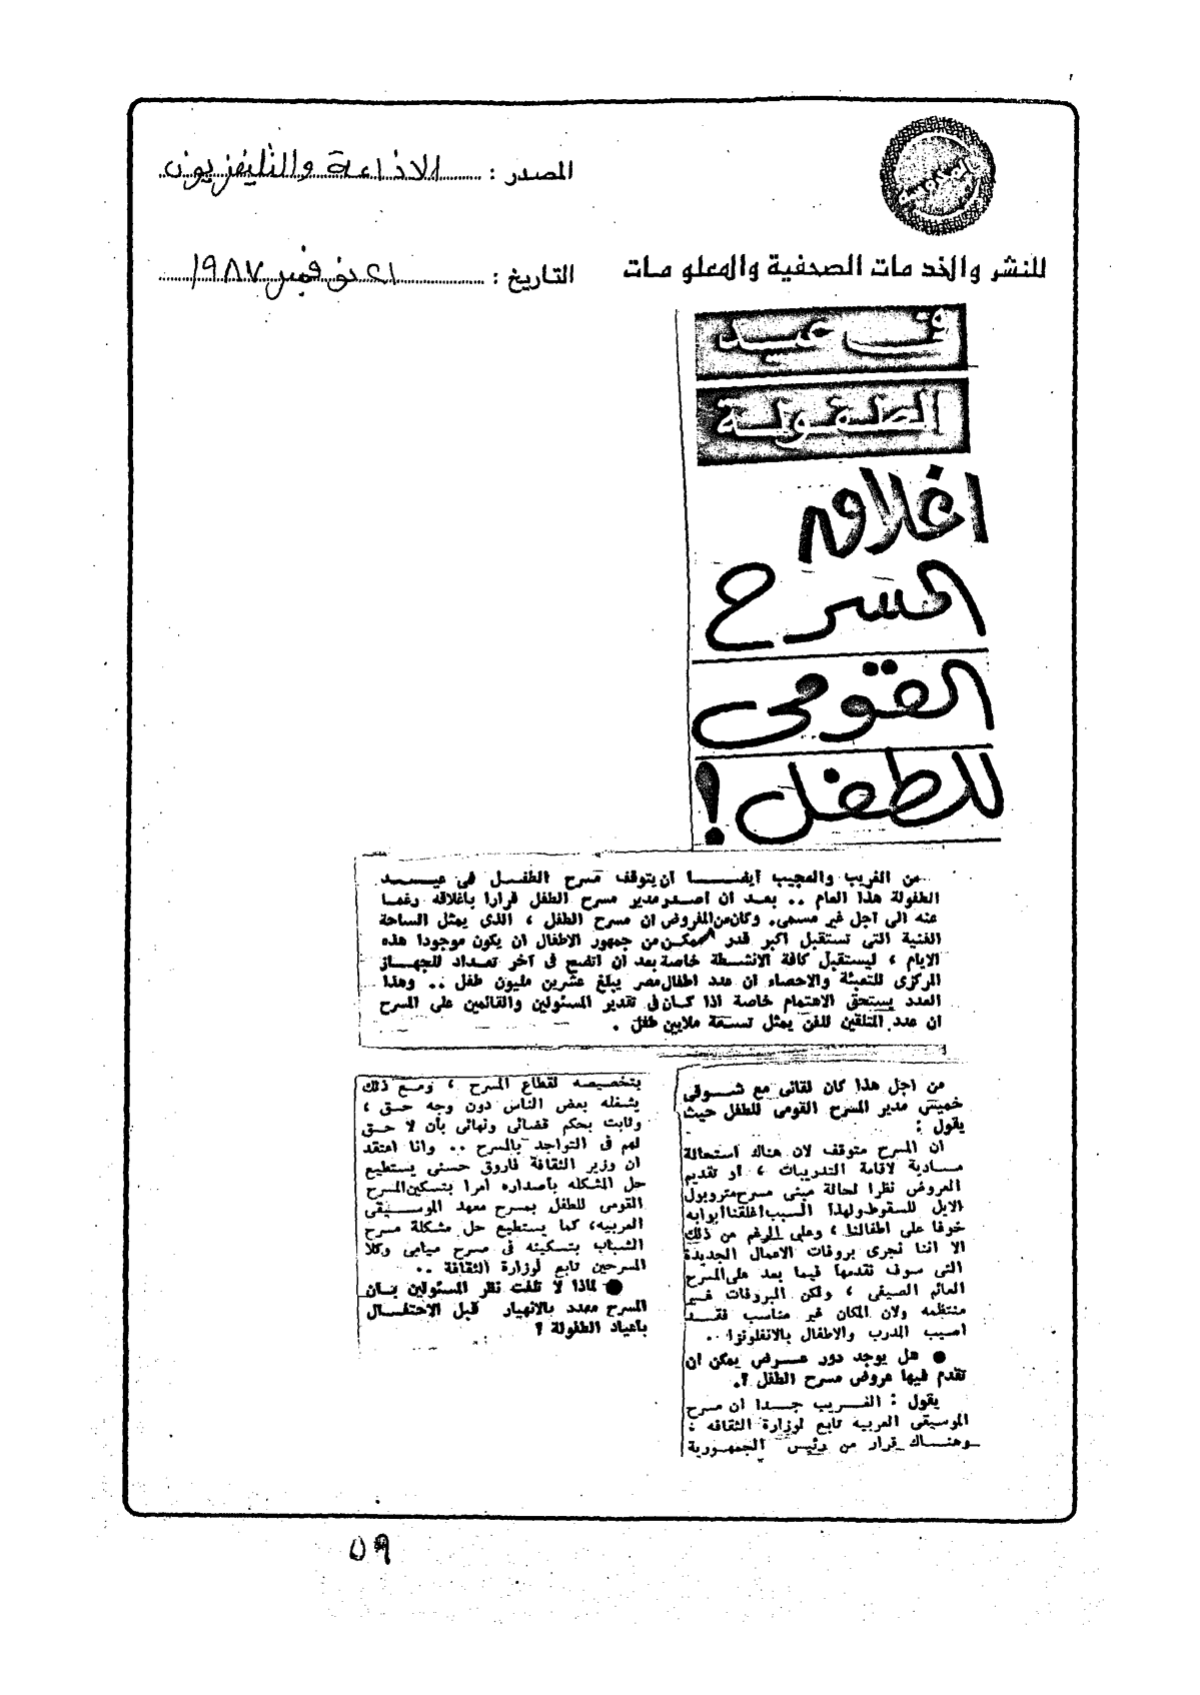 المصدر : الاذاعة والتليفزيون
للنشر والخدمات الصحفية والمعلومات
التاريخ : ٢١ نوفمبر ١٩٨٧
فى عيد
الطفولة
اغلاق
المسرح
القومى
للطفل !
من الغريب والعجيب ايضا ان يتوقف مسرح الطفل فى عيد
الطفولة هذا العام .. بعد ان اصدر مدير مسرح الطفل قرارا باغلاقه رغما
عنه الى اجل غير مسمى. وكان من المفروض ان مسرح الطفل ، الذى يمثل الساحة
الفنية التى تستقبل اكبر قدر ممكن من جمهور الاطفال ان يكون موجودا هذه
الايام ، ليستقبل كافة الانشطة خاصة بعد ان اتضح فى آخر تعداد للجهاز
المركزى للتعبئة والاحصاء ان عدد اطفال مصر يبلغ عشرين مليون طفل .. وهذا
العدد يستحق الاهتمام خاصة اذا كان فى تقدير المسئولين والقائمين على المسرح
ان عدد المتلقين للفن يمثل تسعة ملايين طفل .
من اجل هذا كان لقائى مع شوقى
خميس مدير المسرح القومى للطفل حيث
يقول :
ان المسرح متوقف لان هناك استحالة
مادية لاقامة التدريبات ، او تقديم
العروض نظرا لحالة مبنى مسرح متروبول
الايل للسقوط ولهذا السبب اغلقنا ابوابه
خوفا على اطفالنا ، وعلى الرغم من ذلك
الا اننا نجرى بروفات الاعمال الجديدة
التى سوف نقدمها فيما بعد على المسرح
العائم الصيفى ، ولكن البروفات غير
منتظمه ولان المكان غير مناسب فقد
اصيب المدرب والاطفال بالانفلونزا ..
● هل يوجد دور عرض يمكن ان
تقدم فيها عروض مسرح الطفل ؟.
يقول : الغريب جدا ان مسرح
الموسيقى العربيه تابع لوزارة الثقافه ؛
وهناك قرار من رئيس الجمهورية
بتخصيصه لقطاع المسرح ، ومع ذلك
يشغله بعض الناس دون وجه حق ،
وثابت بحكم قضائى ونهائى بأن لا حق
لهم فى التواجد بالمسرح .. وانا اعتقد
ان وزير الثقافة فاروق حسنى يستطيع
حل المشكله باصداره امرا بتسكين المسرح
القومى للطفل بمسرح معهد الموسيقى
العربيه، كما يستطيع حل مشكلة مسرح
الشباب بتسكينه فى مسرح ميامى وكلا
المسرحين تابع لوزارة الثقافة ..
● لماذا لا تلفت نظر المسئولين بان
المسرح مهدد بالانهيار قبل الاحتفال
باعياد الطفولة ؟
٥٩